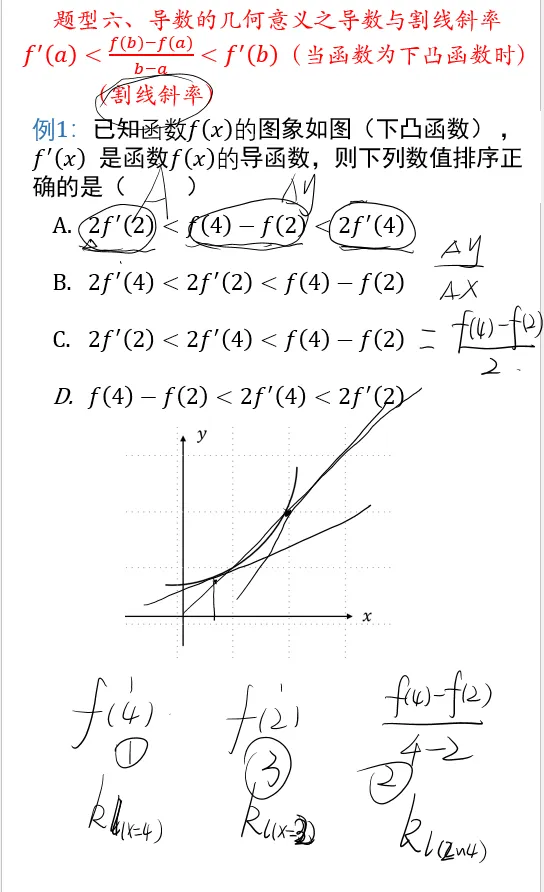 题型六、导数的几何意义之导数与割线斜率
f′(a) < \frac{f(b)−f(a)}{b−a} < f′(b)（当函数为下凸函数时）
(割线斜率)
例1：已知函数f(x)的图象如图（下凸函数），
f′(x) 是函数f(x)的导函数，则下列数值排序正
确的是（ ）
ΔY
A. 2f′(2) < f(4) − f(2) < 2f′(4)
\frac{ΔY}{ΔX}
B. 2f′(4) < 2f′(2) < f(4) − f(2)
C. 2f′(2) < 2f′(4) < f(4) − f(2)
= \frac{f(4)-f(2)}{2}
D. f(4) − f(2) < 2f′(4) < 2f′(2)
y
x
f'(4) f'(2) \frac{f(4)-f(2)}{4-2}
① ③ ②